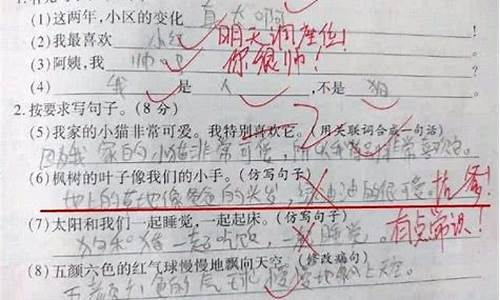 (1)这两年,小区的变化 真大啊
(2)我最喜欢 小红 明天调座位!
(3)阿姨,我 帅吧 你很帅!
(4) 我 是 人 ,不是 狗
2.按要求写句子。(8分)
(5)我家的小猫非常可爱。我特别喜欢它。(用关联词合成一句话)
因为我家的小猫非常可爱,所以我非常喜欢它。
(6)枫树的叶子像我们的小手。(仿写句子)
地上的草地像爸爸的头发,绿油油的很可爱。 找爹!
(7)太阳和我们一起睡觉,一起起床。(仿写句子)
一起吃饭,一起睡觉。 有点常识!
(8)五颜六色的红气球慢慢地飘向天空。(修改病句)
五颜六色的气球慢慢地飘上天空。